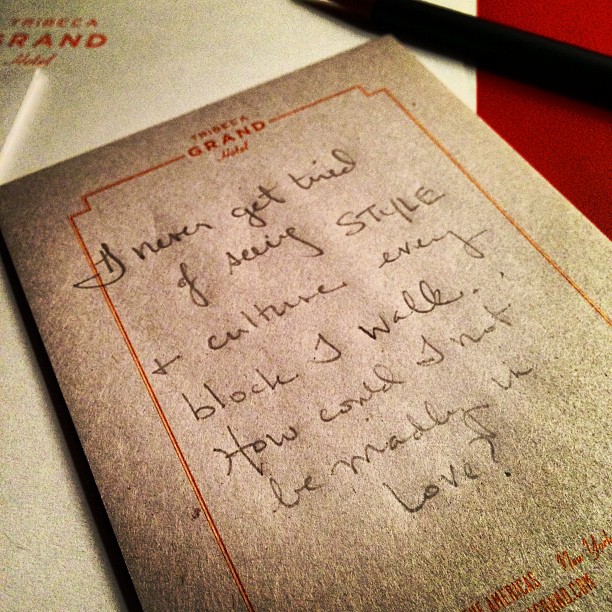 TRIBECA
GRAND
Hotel
TRIBECA
GRAND
Hotel
I never get tired
of seeing STYLE
+ culture every
block I walk..
How could I not
be madly in
Love?
AMERICAS New York